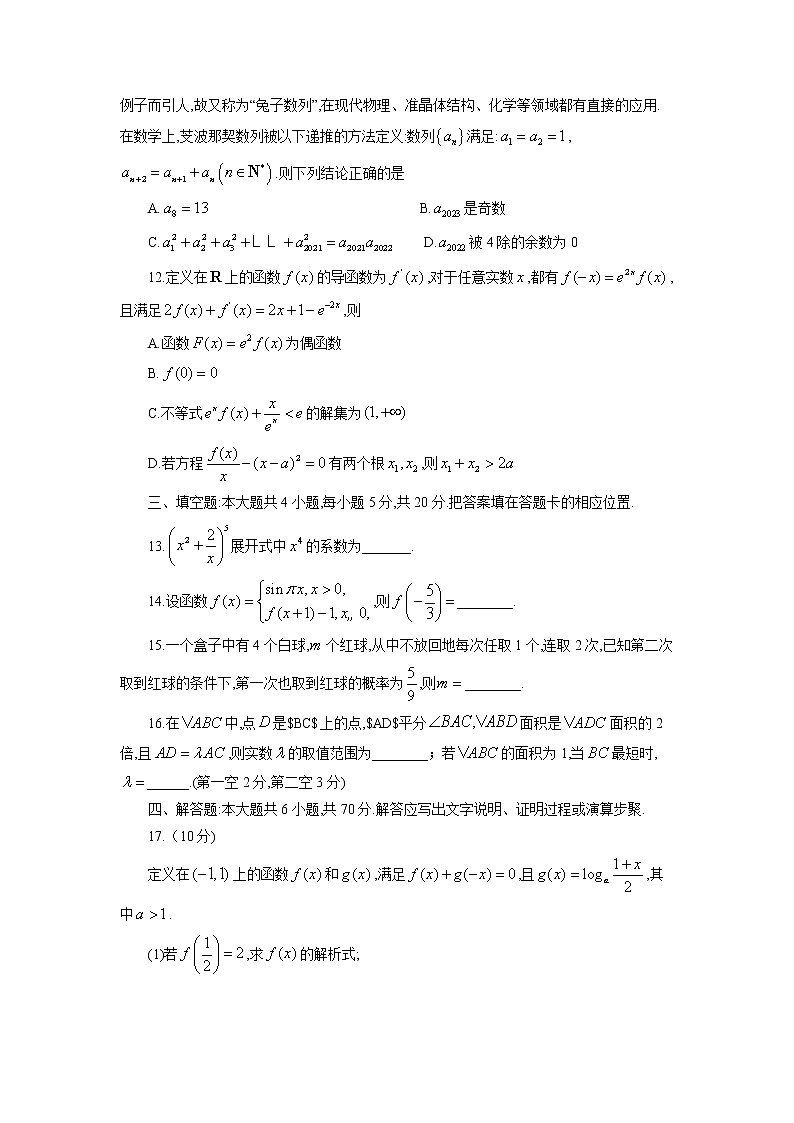 例子而引人,故又称为“兔子数列”,在现代物理、准晶体结构、化学等领域都有直接的应用.
在数学上,芠波那契数列被以下递推的方法定义:数列{aₙ}满足: a₁ = a₂ = 1 ,
aₙ₊₂ = aₙ₊₁ + aₙ (n ∈ N*) .则下列结论正确的是
A. a₈ = 13 B. a₂₀₂₃ 是奇数
C. a₁² + a₂² + a₃² + L L + a₂₀₂₁² = a₂₀₂₁a₂₀₂₂ D. a₂₀₂₂ 被 4 除的余数为 0
12.定义在 R 上的函数 f(x) 的导函数为 f'(x) ,对于任意实数 x ,都有 f(−x) = e²ˣ f(x) ,
且满足 2f(x) + f'(x) = 2x + 1 − e⁻²ˣ ,则
A.函数 F(x) = e² f(x) 为偶函数
B. f(0) = 0
C.不等式 eˣ f(x) + x/eˣ < e 的解集为 (1,+∞)
D.若方程 f(x)/x − (x − a)² = 0 有两个根 x₁, x₂ ,则 x₁ + x₂ > 2a
三、填空题:本大题共 4 小题,每小题 5 分,共 20 分.把答案填在答题卡的相应位置.
13. (x² + 2/x)⁵ 展开式中 x⁴ 的系数为_______.
14.设函数 f(x) = { sin πx, x > 0, f(x+1) − 1, x,, 0, ,则 f(−5/3) = ________.
15.一个盒子中有 4 个白球,m 个红球,从中不放回地每次任取 1 个,连取 2 次,已知第二次
取到红球的条件下,第一次也取到红球的概率为 5/9 ,则m = ________.
16.在 VABC 中,点 D 是$BC$上的点,$AD$平分∠BAC,VABD 面积是 VADC 面积的 2
倍,且 AD = λAC ,则实数 λ 的取值范围为________；若 VABC 的面积为 1,当 BC 最短时,
λ = ______.(第一空 2 分,第二空 3 分)
四、解答题:本大题共 6 小题,共 70 分.解答应写出文字说明、证明过程或演算步聚.
17.（10 分)
定义在 (−1,1) 上的函数 f(x) 和 g(x) ,满足 f(x) + g(−x) = 0 ,且 g(x) = logₐ (1+x)/2 ,其
中 a > 1 .
(1)若 f(1/2) = 2 ,求 f(x) 的解析式;